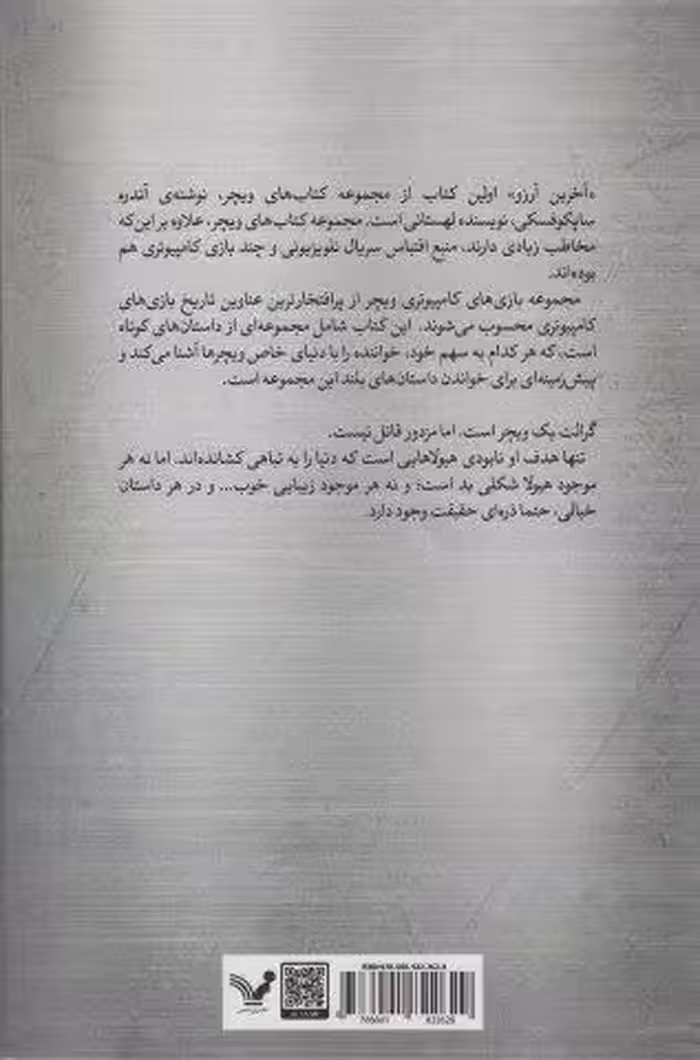 «آخرین آرزو» اولین کتاب از مجموعه کتاب‌های ویچر، نوشته‌ی آندره
ساپکوفسکی، نویسنده لهستانی است. مجموعه کتاب‌های ویچر، علاوه بر این‌که
مخاطب زیادی دارند، منبع اقتباس سریال تلویزیونی و چند بازی کامپیوتری هم
بوده‌اند.
مجموعه بازی‌های کامپیوتری ویچر از پرافتخارترین عناوین تاریخ بازی‌های
کامپیوتری محسوب می‌شوند. این کتاب شامل مجموعه‌ای از داستان‌های کوتاه
است، که هر کدام به سهم خود، خواننده را با دنیای خاص ویچرها آشنا می‌کند و
پیش‌زمینه‌ای برای خواندن داستان‌های بلند این مجموعه است.
گرالت یک ویچر است، اما مزدور قاتل نیست.
تنها هدف او نابودی هیولاهایی است که دنیا را به تباهی کشانده‌اند. اما نه هر
موجود هیولا شکلی بد است؛ و نه هر موجود زیبایی خوب... و در هر داستان
خیالی، حتما ذره‌ای حقیقت وجود دارد.